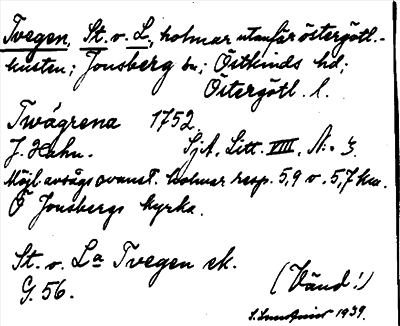 Tvegen, St. o. L., holmar utanför östergötl.-
kusten; Jonsberg sn; Östkinds hd;
Östergötl. l.
Twägrena 1752,
J. Hahn. SjA, Litt. VIII, N:o 3.
Möjl. avsågs ovanst. holmar resp. 5,9 o. 5,7 km.
Ö Jonsbergs kyrka.
St. o. La Tvegen ek.
G. 56. (Vänd!)
1939.